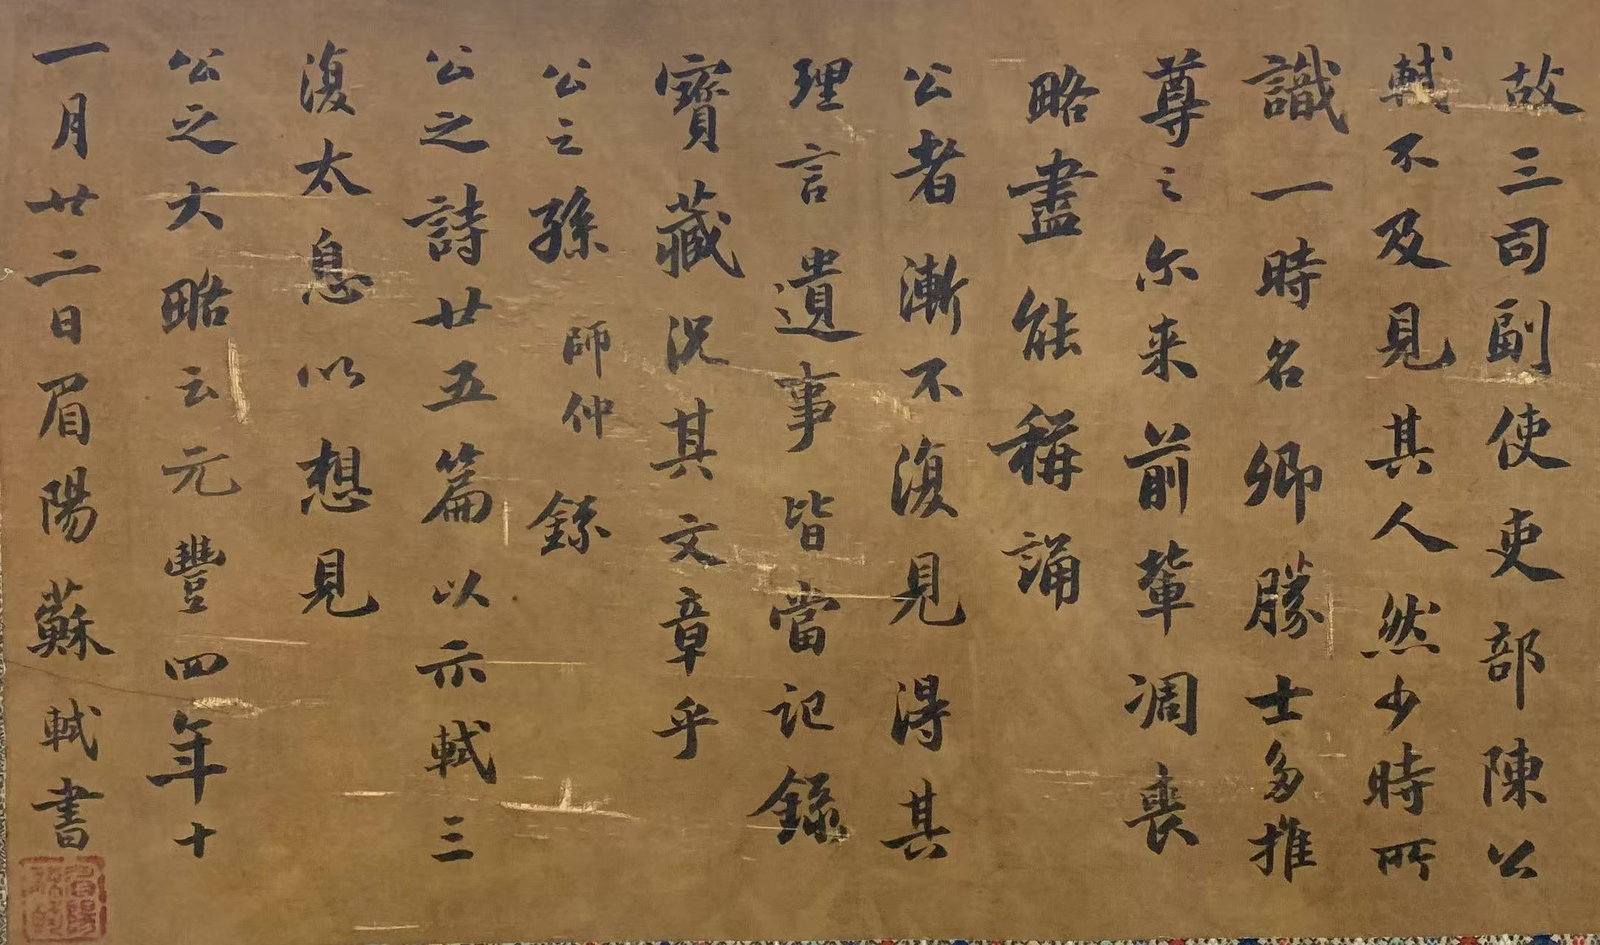 故三司副使吏部陳公
軾不及見其人然少時所
識一時名卿勝士多推
尊之尒来前輩凋喪
略盡能稱誦
公者漸不復見得其
理言遺事皆當記錄
寳藏況其文章乎
公之孫師仲錄
公之詩廿五篇以示軾三
復太息以想見
公之大略云元豐四年十
一月廿二日眉陽蘇軾書
眉陽蘇軾